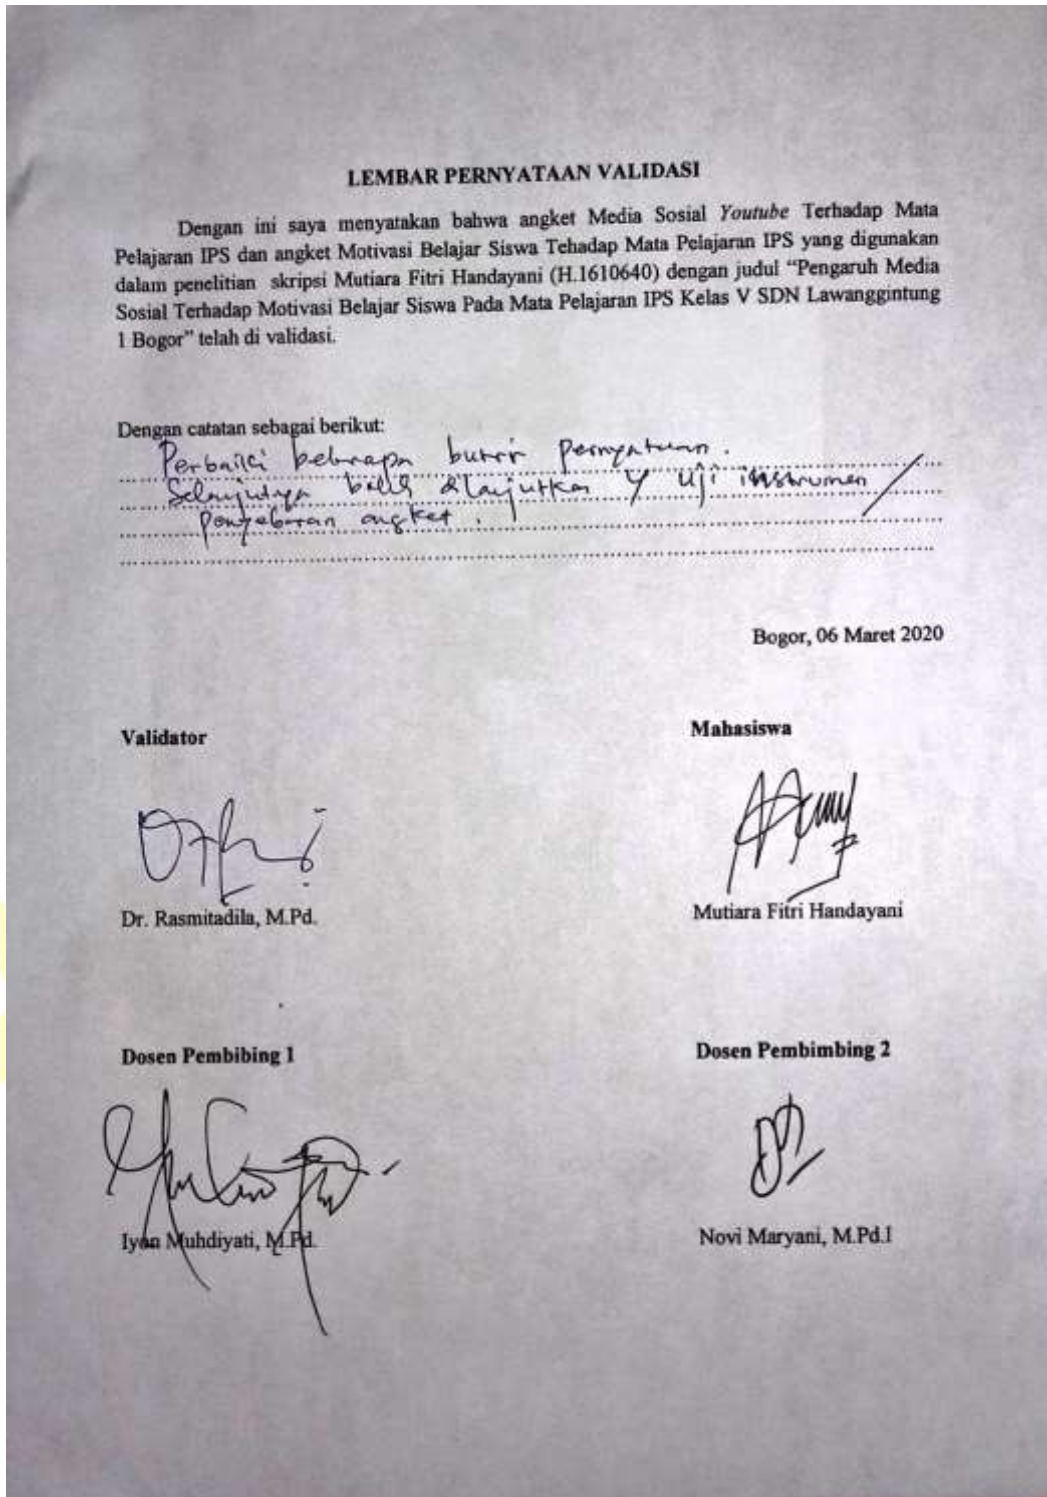 LEMBAR PERNYATAAN VALIDASI
Dengan ini saya menyatakan bahwa angket Media Sosial Youtube Terhadap Mata
Pelajaran IPS dan angket Motivasi Belajar Siswa Tehadap Mata Pelajaran IPS yang digunakan
dalam penelitian skripsi Mutiara Fitri Handayani (H.1610640) dengan judul “Pengaruh Media
Sosial Terhadap Motivasi Belajar Siswa Pada Mata Pelajaran IPS Kelas V SDN Lawanggintung
1 Bogor” telah di validasi.
Dengan catatan sebagai berikut:
Perbaiki beberapa butir pernyataan.
Selanjutnya dilanjutkan uji instrumen /
penyebaran angket.
Bogor, 06 Maret 2020
Validator
Mahasiswa
Dr. Rasmitadila, M.Pd.
Mutiara Fitri Handayani
Dosen Pembibing 1
Dosen Pembimbing 2
Iyon Muhdiyati, M.Pd.
Novi Maryani, M.Pd.I